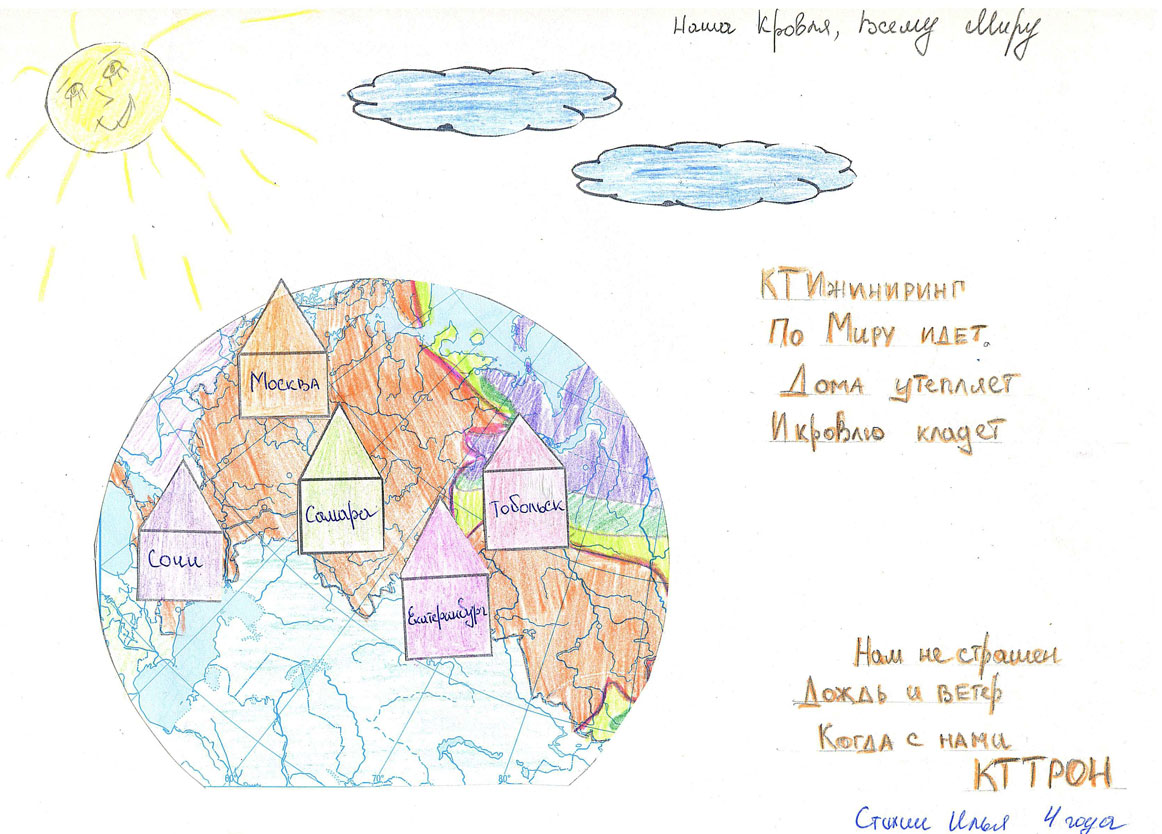 Наша Кровля, Всему Миру
КТИжиниринг
По Миру идет.
Дома утепляет
И кровлю кладет
Москва
Самара
Тобольск
Сочи
Екатеринбург
Нам не страшен
Дождь и ветер
Когда с нами
КТТРОН
Стихин Илья 4 года
70°